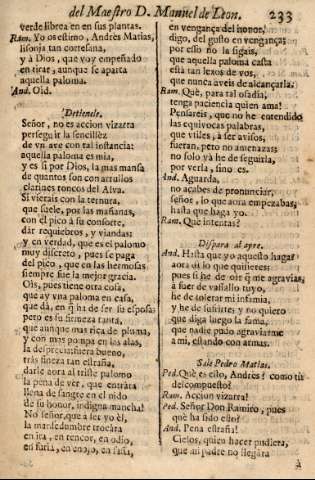 del Maestro D. Manuel de Leon. 233
verde librea en en sus plantas.
Ram. Yo os estimo, Andrès Matias,
lisonja tan cortesana,
y à Dios, que voy empeñado
en tirar, aunque se aparta
aquella paloma.
And. Oid.
Detienele.
Señor, no es accion vizarra
perseguir la sencillèz
de vn ave con tal instancia:
aquella paloma es mia,
y es si por Dios, la mas mansa
de quantos son con arrullos
clarines roncos del Alva.
Si vierais con la ternura,
que suele, por las mañanas,
con el pico à su consorte,
dàr requiebros, y viandas:
y en verdad, que es el palomo
muy discreto, pues se paga
del pico, que en las hermosas
siempre fue la mejor gracia.
Ois, pues tiene otra cosa,
que ay vna paloma en casa,
que dà, en q̃ na de ser su esposa:
pero es su fineza tanta,
que aunque mas rica de pluma,
y con mas pompa en las alas,
la desprecia: fuera bueno,
tràs fineza tan estraña,
darle aora al triste palomo
la pena de ver, que entrara
llena de sangre en el nido
de su honor, indigna mancha!
No señor, que à ser yo èl,
la mansedumbre trocàra
en ira, en rencor, en odio,
en furia, en enojo, en saña,
en vengança del honor,
digo, del gusto en vengança;
por esso no la sigais,
que aquella paloma casta
està tan lexos de vos,
que nunca aveis de alcançarla.
Ram. Què, para tal osadia,
tenga paciencia quien ama!
Pensareis, que no he entendido
las equivocas palabras,
que vtiles, à ser avisos,
fueran, pero no amenazas:
no solo yà he de seguirla,
por verla, sino es.
And. Aguarda,
no acabes de pronunciar,
señor, lo que aora empezabas,
hasta que haga yo.
Ram. Què intentas?
Dispara al ayre.
And. Hasta que yo aquesto hagas
aora di lo que quisieres:
pues si he de oir q̃ me agravias,
à fuer de vassallo tuyo,
he de tolerar mi infamia,
y he de sufrirte; y no quiero
que diga luego la fama,
que nadie pudo agraviarme
à mi, estando con armas.
Sale Pedro Matias.
Ped. Què es esto, Andrès? como tu
descompuesto?
Ram. Accion vizarra!
Ped. Señor Don Ramiro, pues
què ha sido esto?
And. Pena estraña!
Cielos, quien hacer pudiera,
que mi padre no llegàra
à